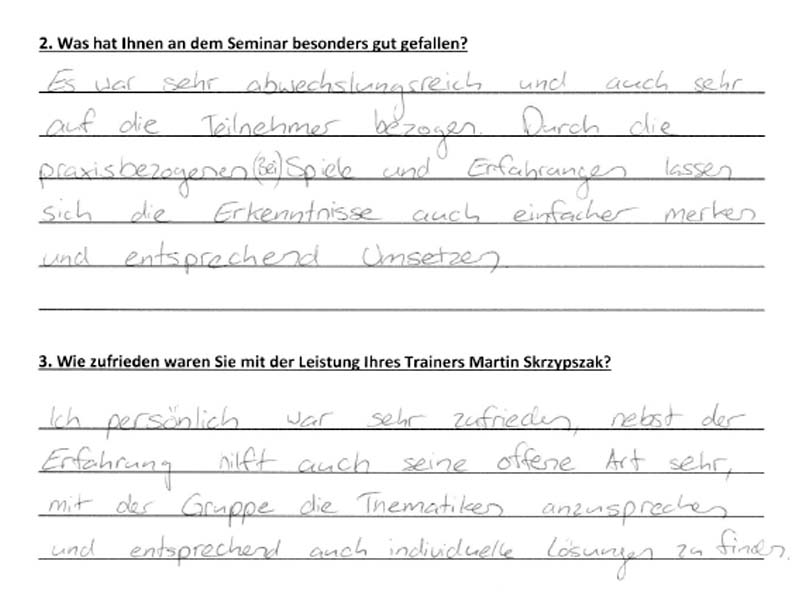 2. Was hat Ihnen an dem Seminar besonders gut gefallen?
Es war sehr abwechslungsreich und auch sehr
auf die Teilnehmer bezogen. Durch die
praxisbezogenen (Bei)Spiele und Erfahrungen lassen
sich die Erkenntnisse auch einfacher merken
und entsprechend Umsetzen.
3. Wie zufrieden waren Sie mit der Leistung Ihres Trainers Martin Skrzypszak?
Ich persönlich war sehr zufrieden, nebst der
Erfahrung hilft auch seine offene Art sehr,
mit der Gruppe die Thematiken anzusprechen
und entsprechend auch individuelle Lösungen zu finden.